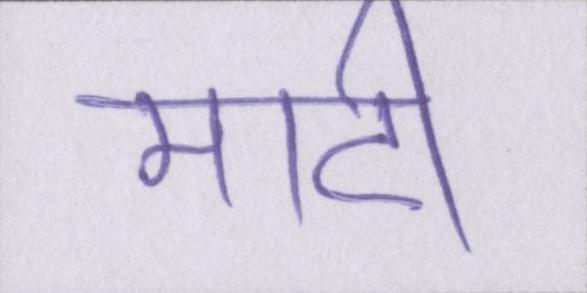 माटी